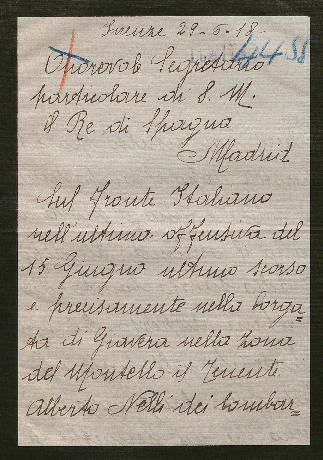 Firenze 29-6-18.
44488
Onorevole Segretario
particolare di S. M.
il Re di Spagna
Madrid
Sul Fronte Italiano
nell'ultima offensiva del
15 Giugno ultimo scorso
e precisamente nella borga=
ta di Giavera nella zona
del Montello il Tenente
Alberto Nelli dei bombar=